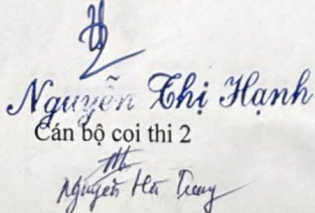 Nguyễn Thị Hạnh
Cán bộ coi thi 2
Nguyễn Hà Trung